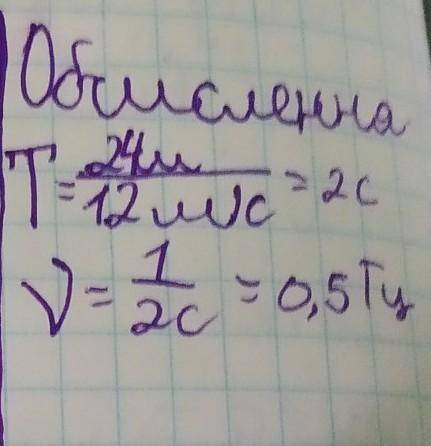 Обчислення
T = 24м / 12м/с = 2с
ν = 1 / 2с = 0,5 Гц